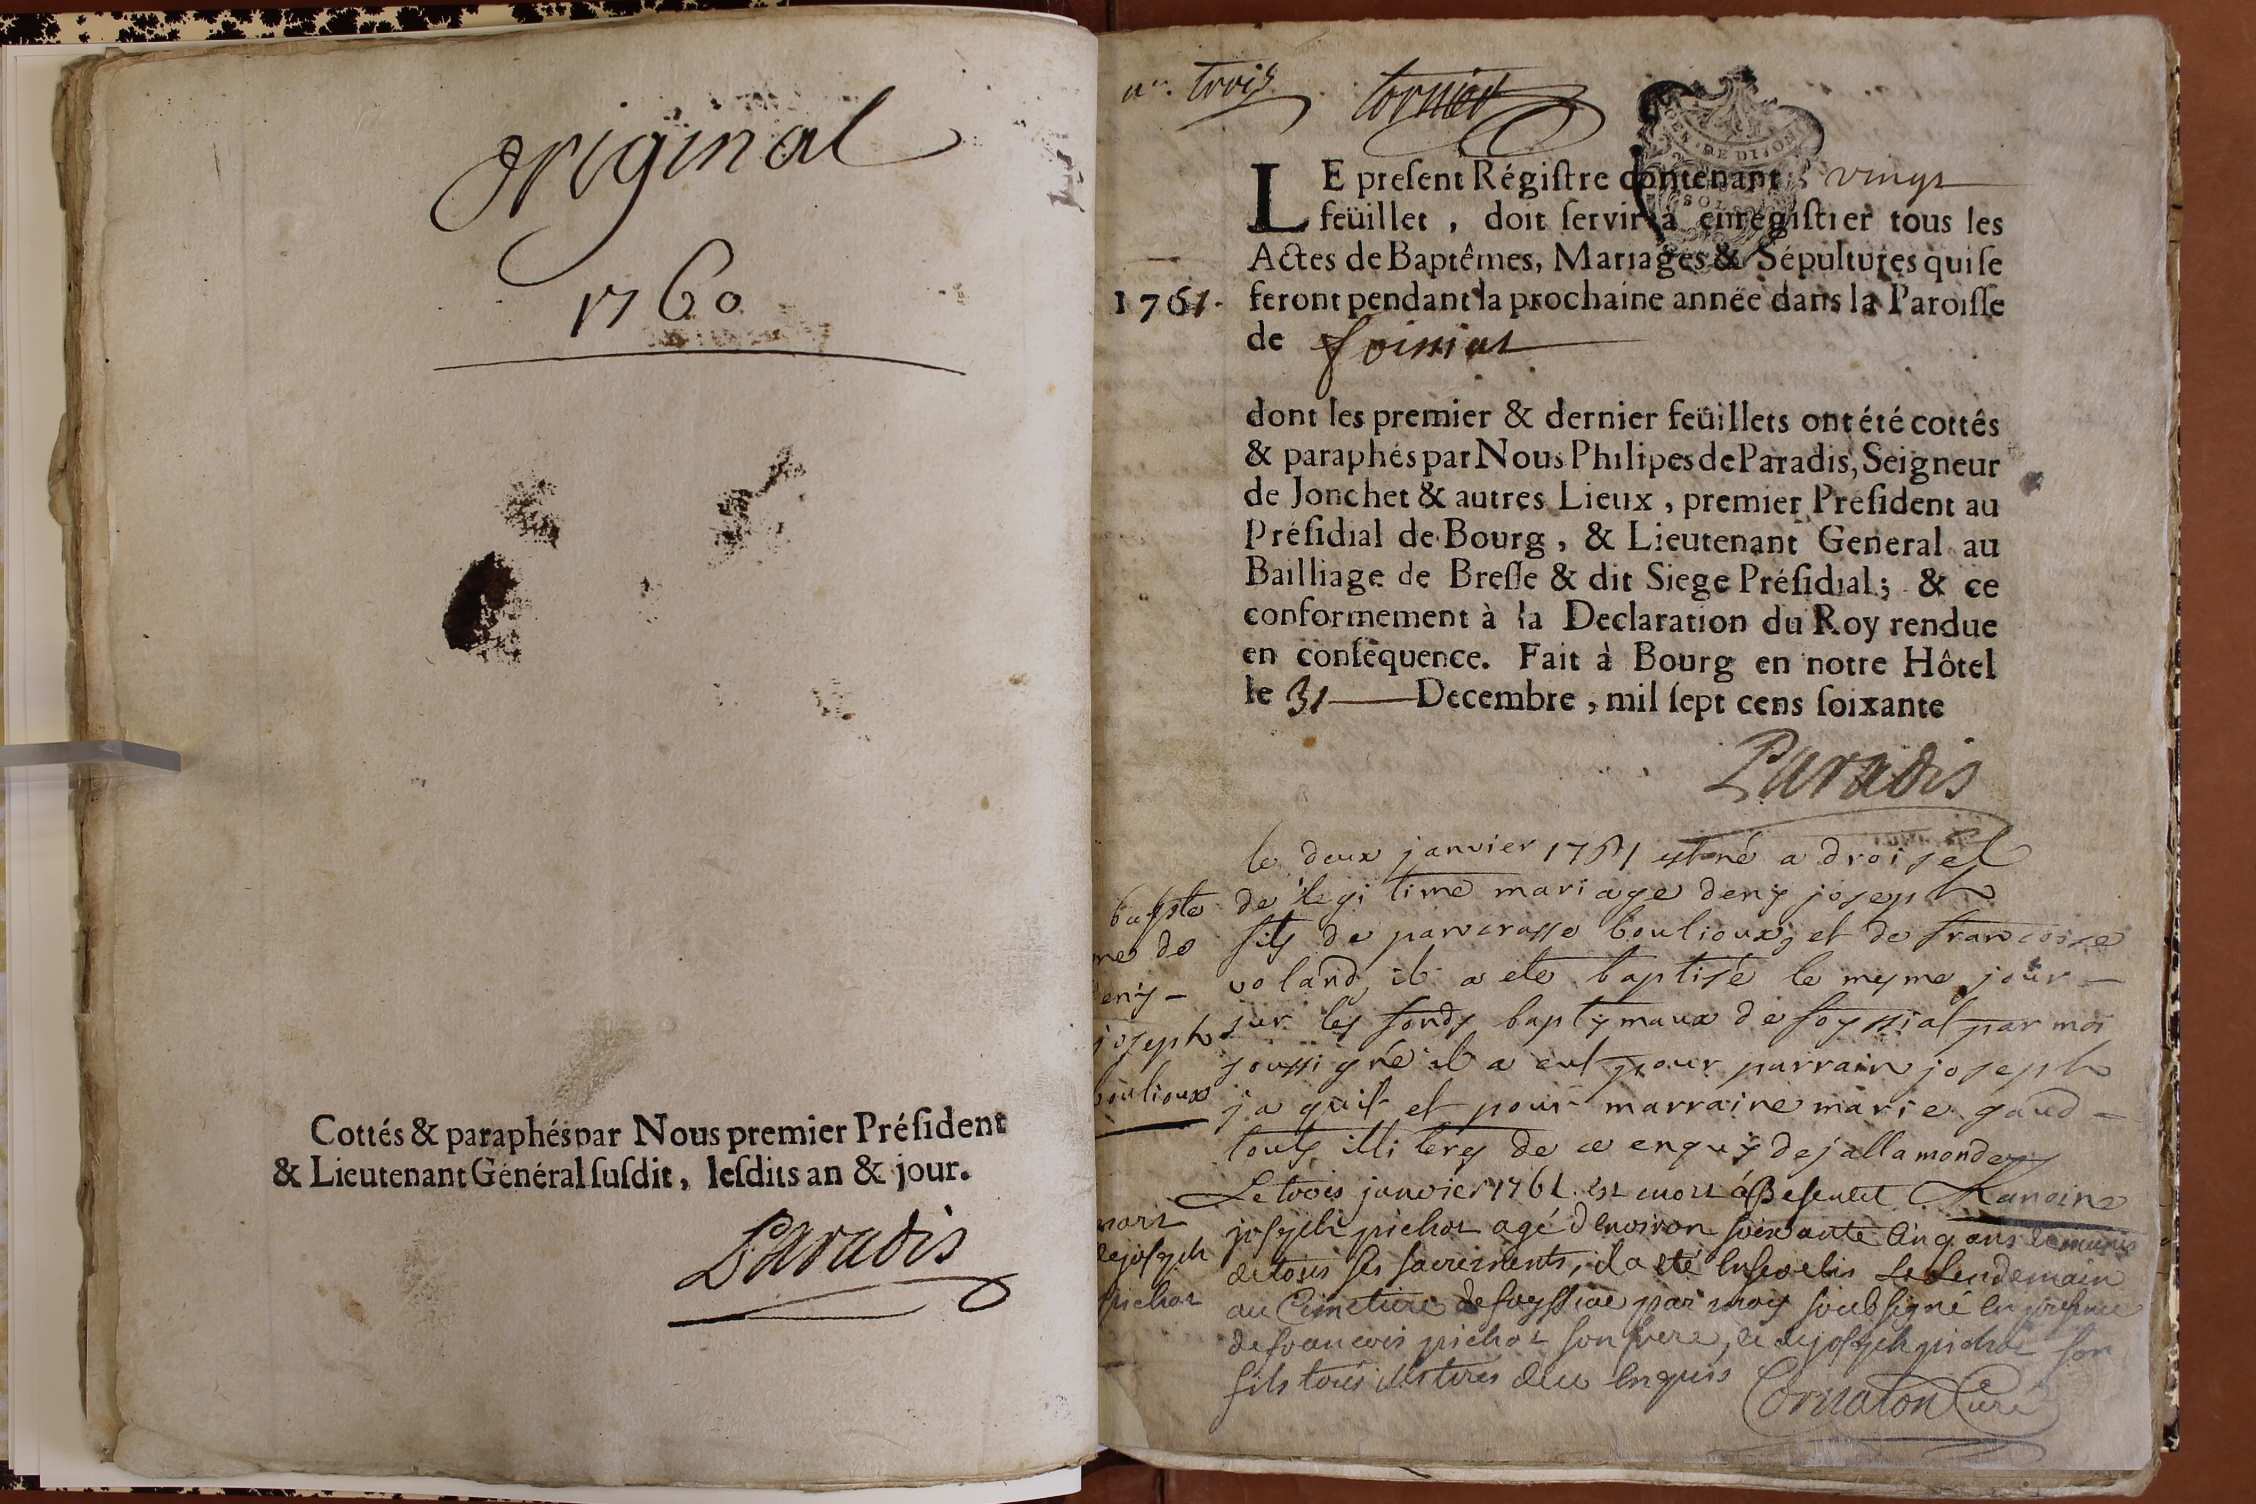 original
1760
Cottés & paraphés par Nous premier Préſident
& Lieutenant Général ſuſdit, leſdits an & jour.
Paradis
trois
LE preſent Régiſtre contenant vingt
feüillet, doit ſervir à enregiſtrer tous les
Actes de Baptêmes, Mariages & Sépultures qui ſe
1761. feront pendant la prochaine année dans la Paroiſſe
de
dont les premier & dernier feüillets ont été cottés
& paraphés par Nous Philipes de Paradis, Seigneur
de Jonchet & autres Lieux, premier Préſident au
Préſidial de Bourg, & Lieutenant General au
Bailliage de Breſſe & dit Siege Préſidial; & ce
conformement à la Declaration du Roy rendue
en conſéquence. Fait à Bourg en notre Hôtel
le 31 Decembre, mil ſept cens ſoixante
Paradis
le deux janvier 1761 est né a droisel
de legitime mariage deny joseph
fils de pancrasse boulioux, et de francoise
voland, il a ete baptisé le mesme jour
sur les fonds baptymaux de foyssiat par moi
soussigné il a eut pour parrain joseph
jaquit et pour marraine marie gaud
touts illiteres de ce enquis dejallamondes
me de
deny
joseph
boulioux
Le trois janvier 1761 est mort à Beseutet
joseph pichot agé d'environ soixante cinq ans
de tous ses sacrements, il a eté ensevelis le lendemain
au Cimetiere de foyssiae par moy soubsigné en presence
de francois pichot son frere, et de joseph pichot son
fils tous illiteres de ce enquis
Cornaton Curé
mort
de joseph
pichot